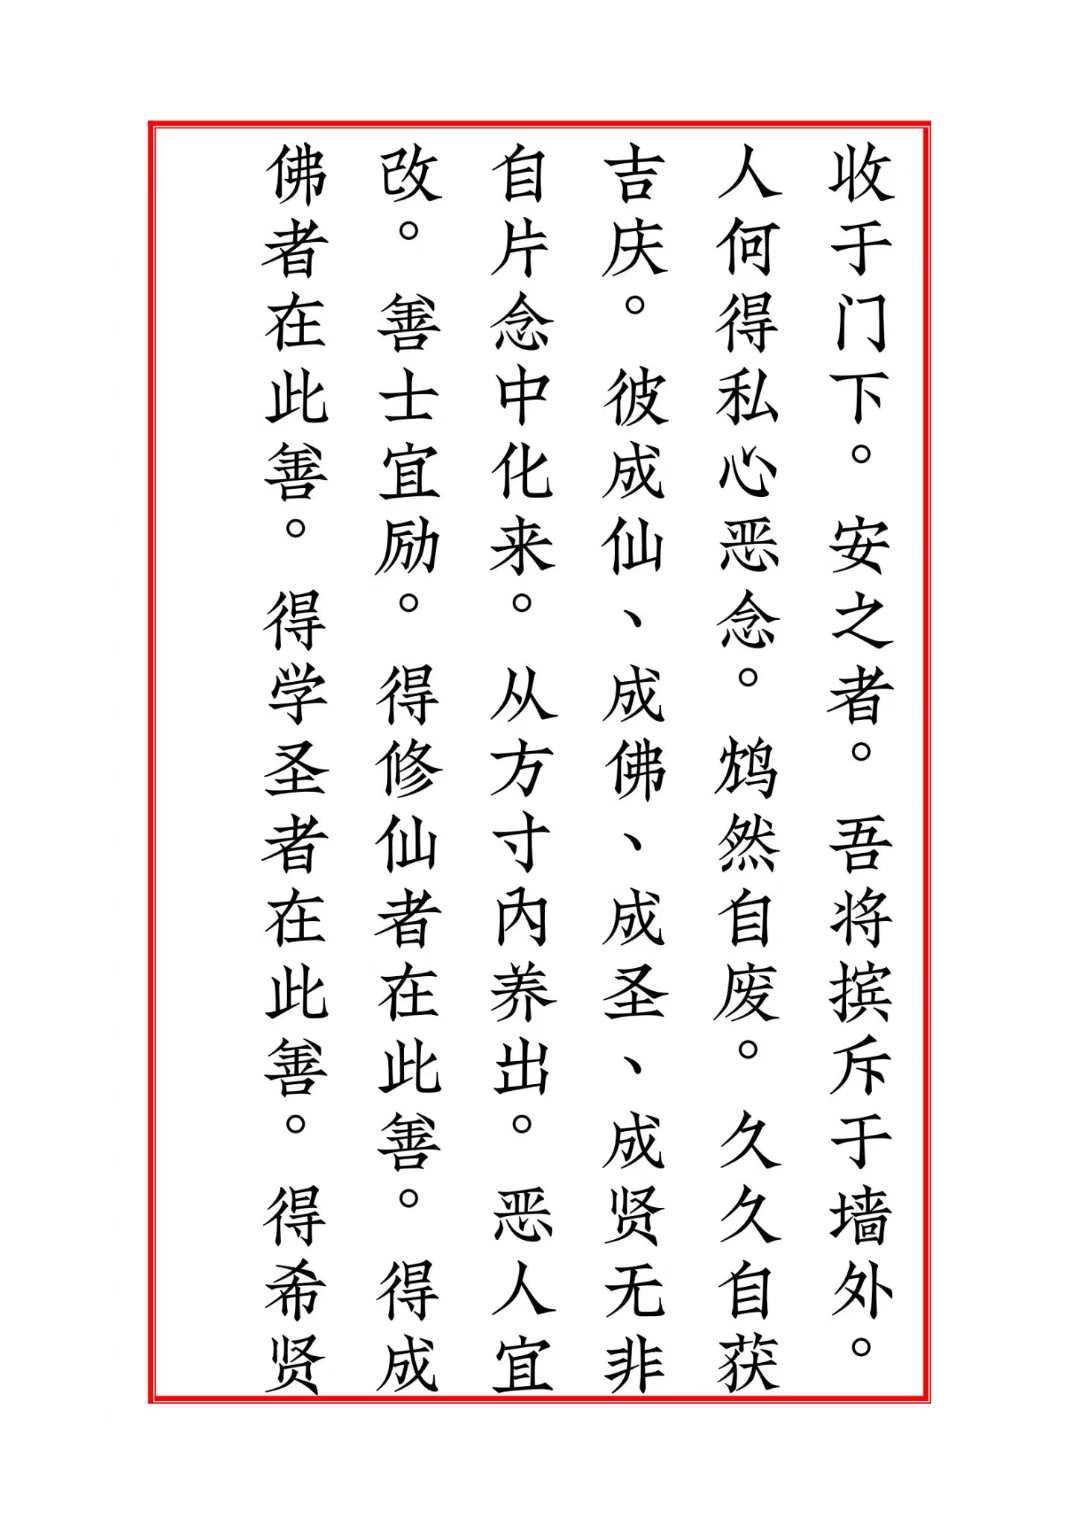 收于门下。安之者。吾将摈斥于墙外。
人何得私心恶念。鸩然自废。久久自获
吉庆。彼成仙、成佛、成圣、成贤无非
自片念中化来。从方寸内养出。恶人宜
改。善士宜励。得修仙者在此善。得成
佛者在此善。得学圣者在此善。得希贤